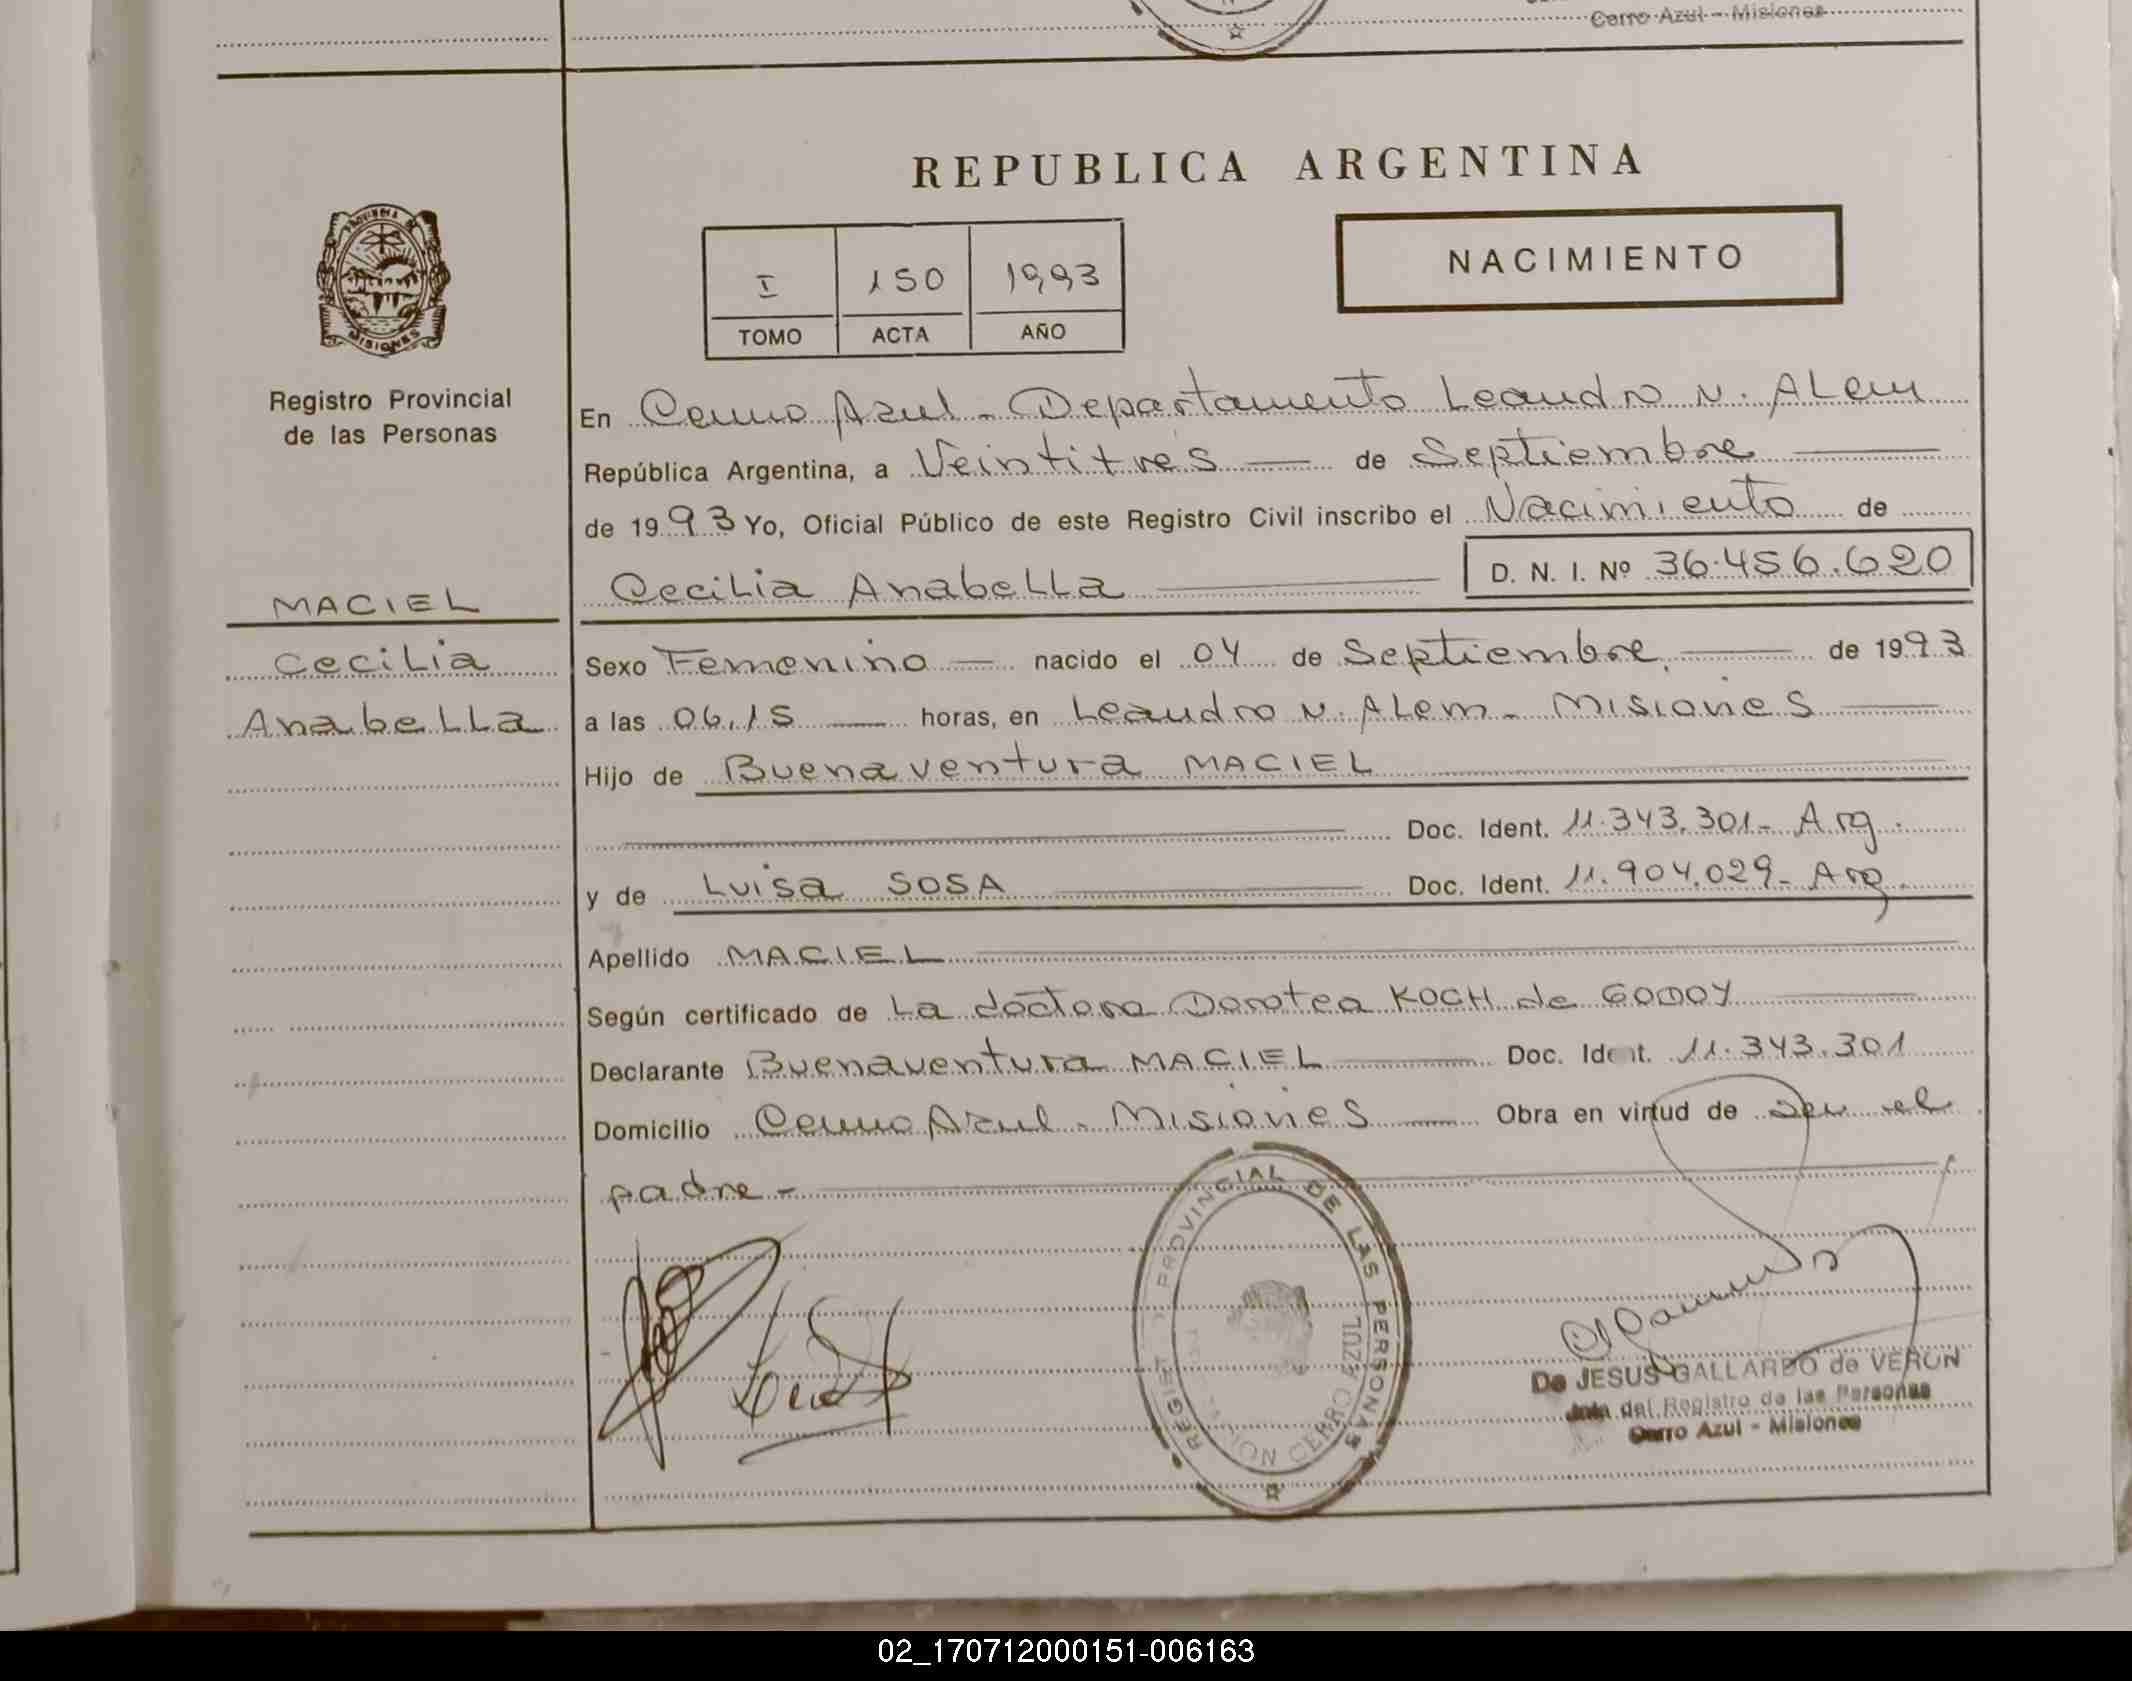 Cerro Azul - Misiones
REPUBLICA ARGENTINA
PROVINCIA DE
MISIONES
Registro Provincial
de las Personas
I 150 1993
TOMO ACTA AÑO
NACIMIENTO
En Cerro Azul - Departamento Leandro N. ALem
República Argentina, a Veintitres — de Septiembre —
de 1993 Yo, Oficial Público de este Registro Civil inscribo el Nacimiento de
Cecilia Anabella — D. N. I. Nº 36.456.620
MACIEL
Cecilia
Anabella
Sexo Femenino — nacido el 04 de Septiembre. — de 1993
a las 06,15 — horas, en Leandro N. ALem - Misiones —
Hijo de Buenaventura MACIEL
Doc. Ident. 11.343.301- Arg.
y de Luisa SOSA — Doc. Ident. 11.904.029- Arg.
Apellido MACIEL
Según certificado de La doctora Dorotea KOCH de GODOY
Declarante Buenaventura MACIEL — Doc. Ident. 11.343.301
Domicilio Cerro Azul - Misiones — Obra en virtud de ser el
padre -
PROVINCIAL DE LAS PERSONAS
CERRO AZUL
De JESUS GALLARDO de VERON
Jefa del Registro de las Personas
Cerro Azul - Misiones
02_170712000151-006163